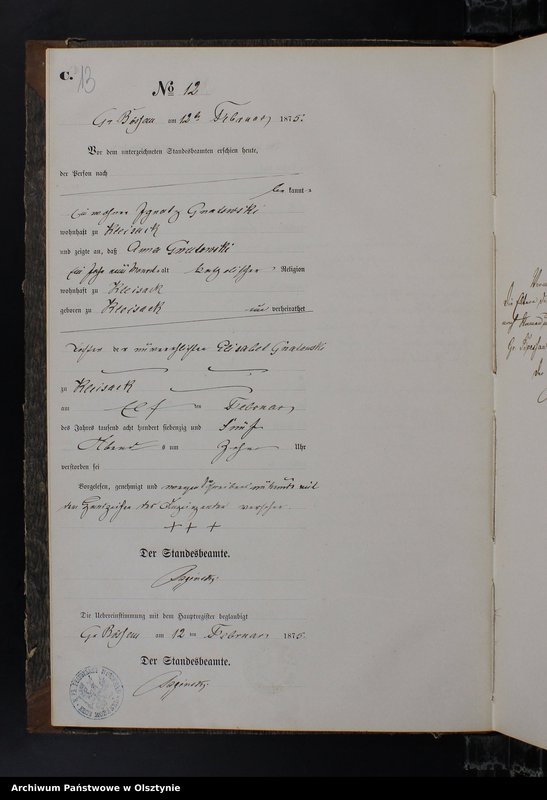 C.
13
No 12
Gr. Bössau am 12t Februar 1875.
Vor dem unterzeichneten Standesbeamten erschien heute,
der Person nach
kannt
Einwohner Ignatz Gnatowski
wohnhaft zu Kleisack
und zeigte an, daß Anna Gnatowski
ein Jahr neun Monat alt katholischer Religion
wohnhaft zu Kleisack
geboren zu Kleisack verheirathet
Tochter der unverehlichten Elisabet Gnatowski
zu Kleisack
am Elf ten Februar
des Jahres tausend acht hundert siebenzig und fünf
Abend s um Zehn Uhr
verstorben sei
Vorgelesen, genehmigt und wegen Schreibens unkunde mit
den Handzeichen des Anzeigenden versehen.
+ + +
Der Standesbeamte.
Die Uebereinstimmung mit dem Hauptregister beglaubigt
Gr. Bössau am 12 ten Februar 1875.
Der Standesbeamte.
Archiwum Państwowe w Olsztynie